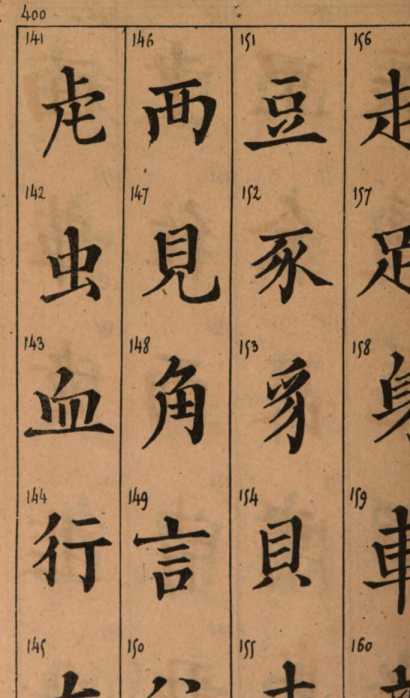 400
141 146 151 156
虍 襾 豆 走
142 147 152 157
虫 見 豕 足
143 148 153 158
血 角 豸 身
144 149 154 159
行 言 貝 車
145 150 155 160